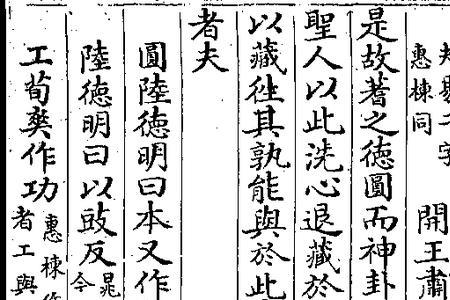 二字
惠棟同
開王肅
是故蓍之德圓而神卦
聖人以此洗心退藏於
以藏徃其孰能與於此
者夫
圓陸德明曰本又作
陸德明曰以豉反晁
今
工荀爽作功惠棟作
者工與